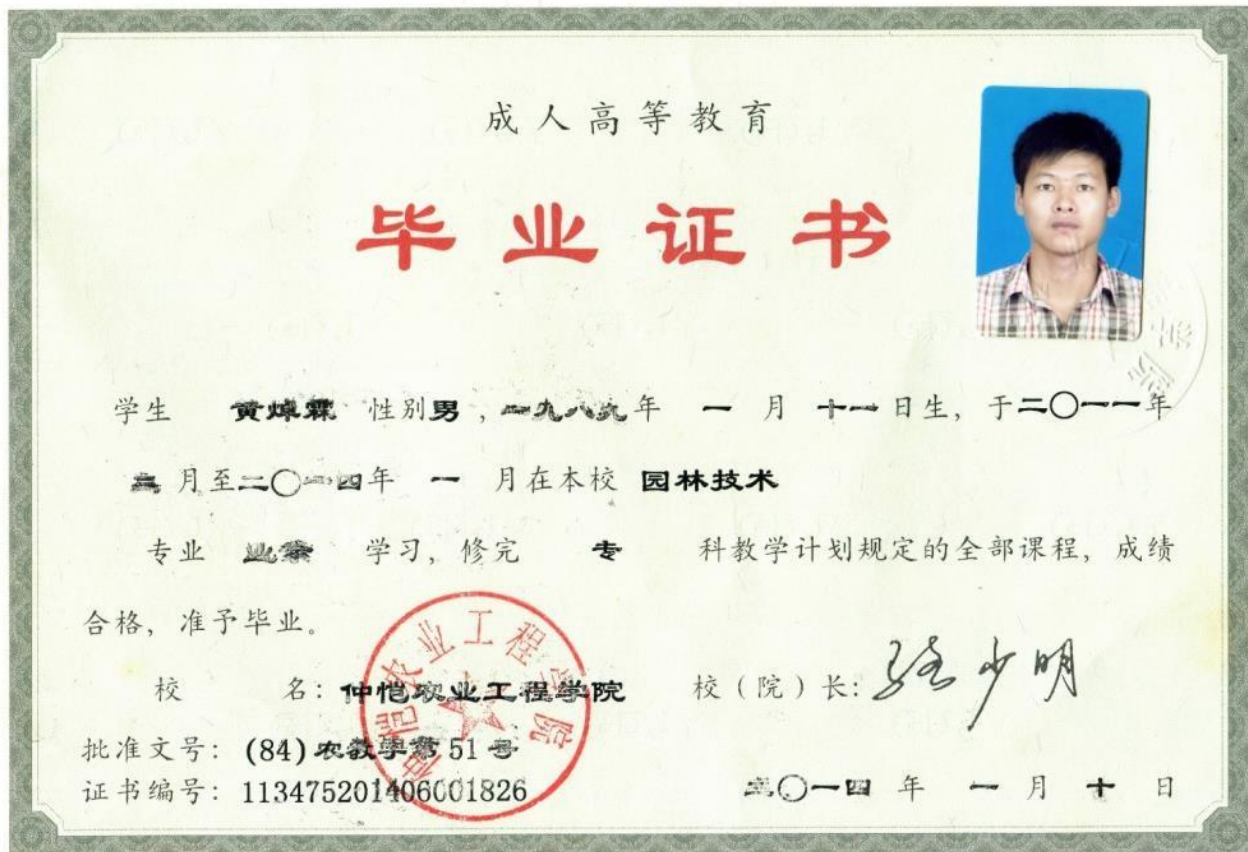 成人高等教育
毕业证书
学生 黄焯霖 性别男，一九八九年 一 月 十一日生，于二〇一一年
月至二〇一四年 一 月在本校 园林技术
专业 业余 学习，修完 专 科教学计划规定的全部课程，成绩
合格，准予毕业。
校 名：仲恺农业工程学院 校（院）长：骆少明
批准文号：(84)农教学第51号
证书编号：113475201406001826 二〇一四 年 一 月 十 日
仲恺农业工程学院